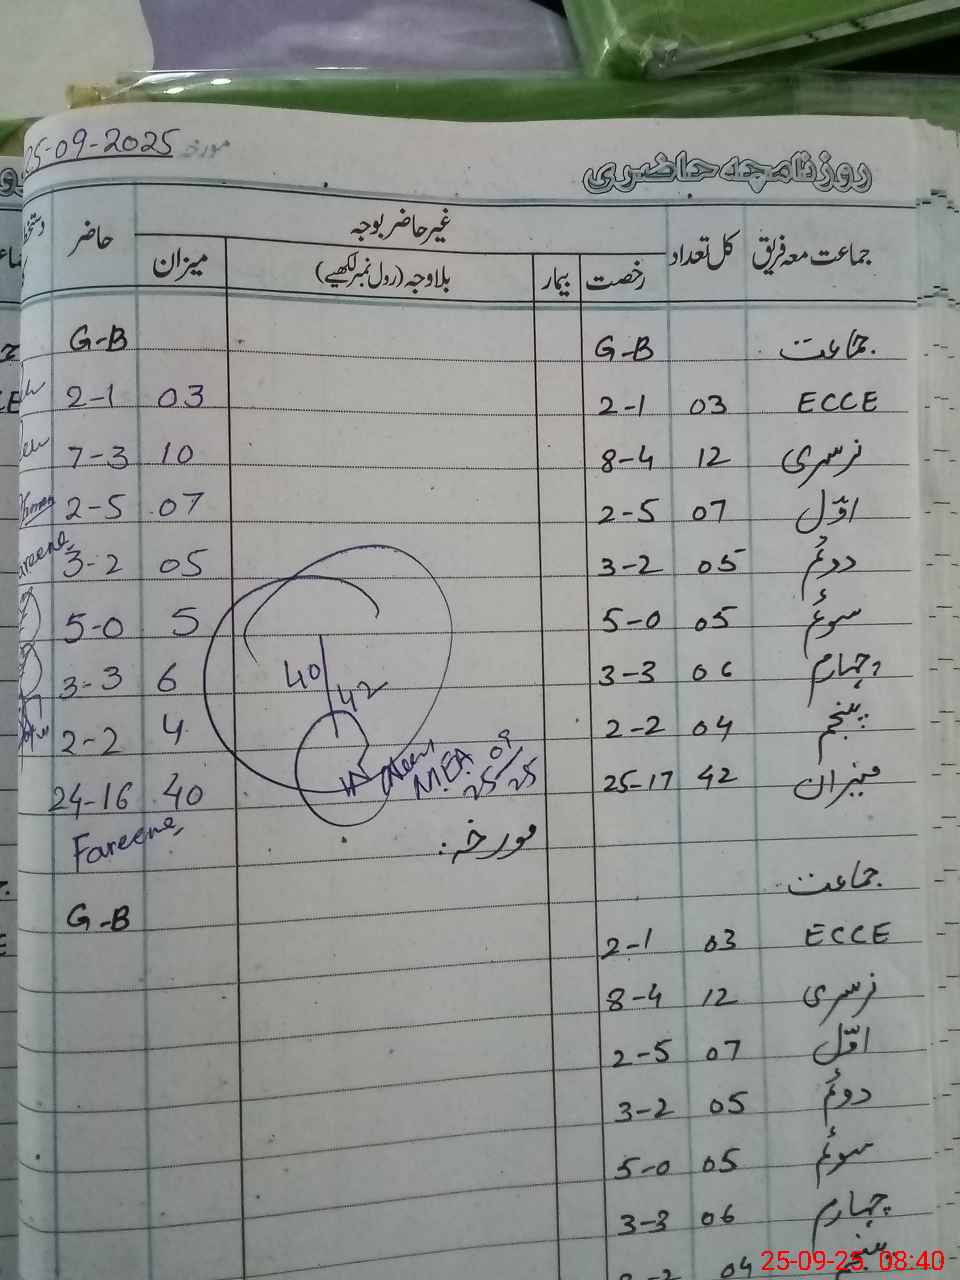 روزنامچہ حاضری مورخہ 25-09-2025
جماعت معہ فریق کل تعداد غیر حاضر بوجہ حاضر
رخصت بیمار بلاوجہ (رول نمبر لکھیے) میزان
جماعت G-B G-B
ECCE 03 2-1 03 2-1
نرسری 12 8-4 10 7-3
اوّل 07 2-5 07 2-5
دوئم 05 3-2 05 3-2
سوئم 05 5-0 5 5-0
چہارم 06 3-3 6 3-3
پنجم 04 2-2 4 2-2
میزان 42 25-17 40 24-16
40/42
MEA
25/09/25
Fareene
مورخہ:
جماعت G-B
ECCE 03 2-1
نرسری 12 8-4
اوّل 07 2-5
دوئم 05 3-2
سوئم 05 5-0
چہارم 06 3-3
پنجم 04
25-09-25 08:40